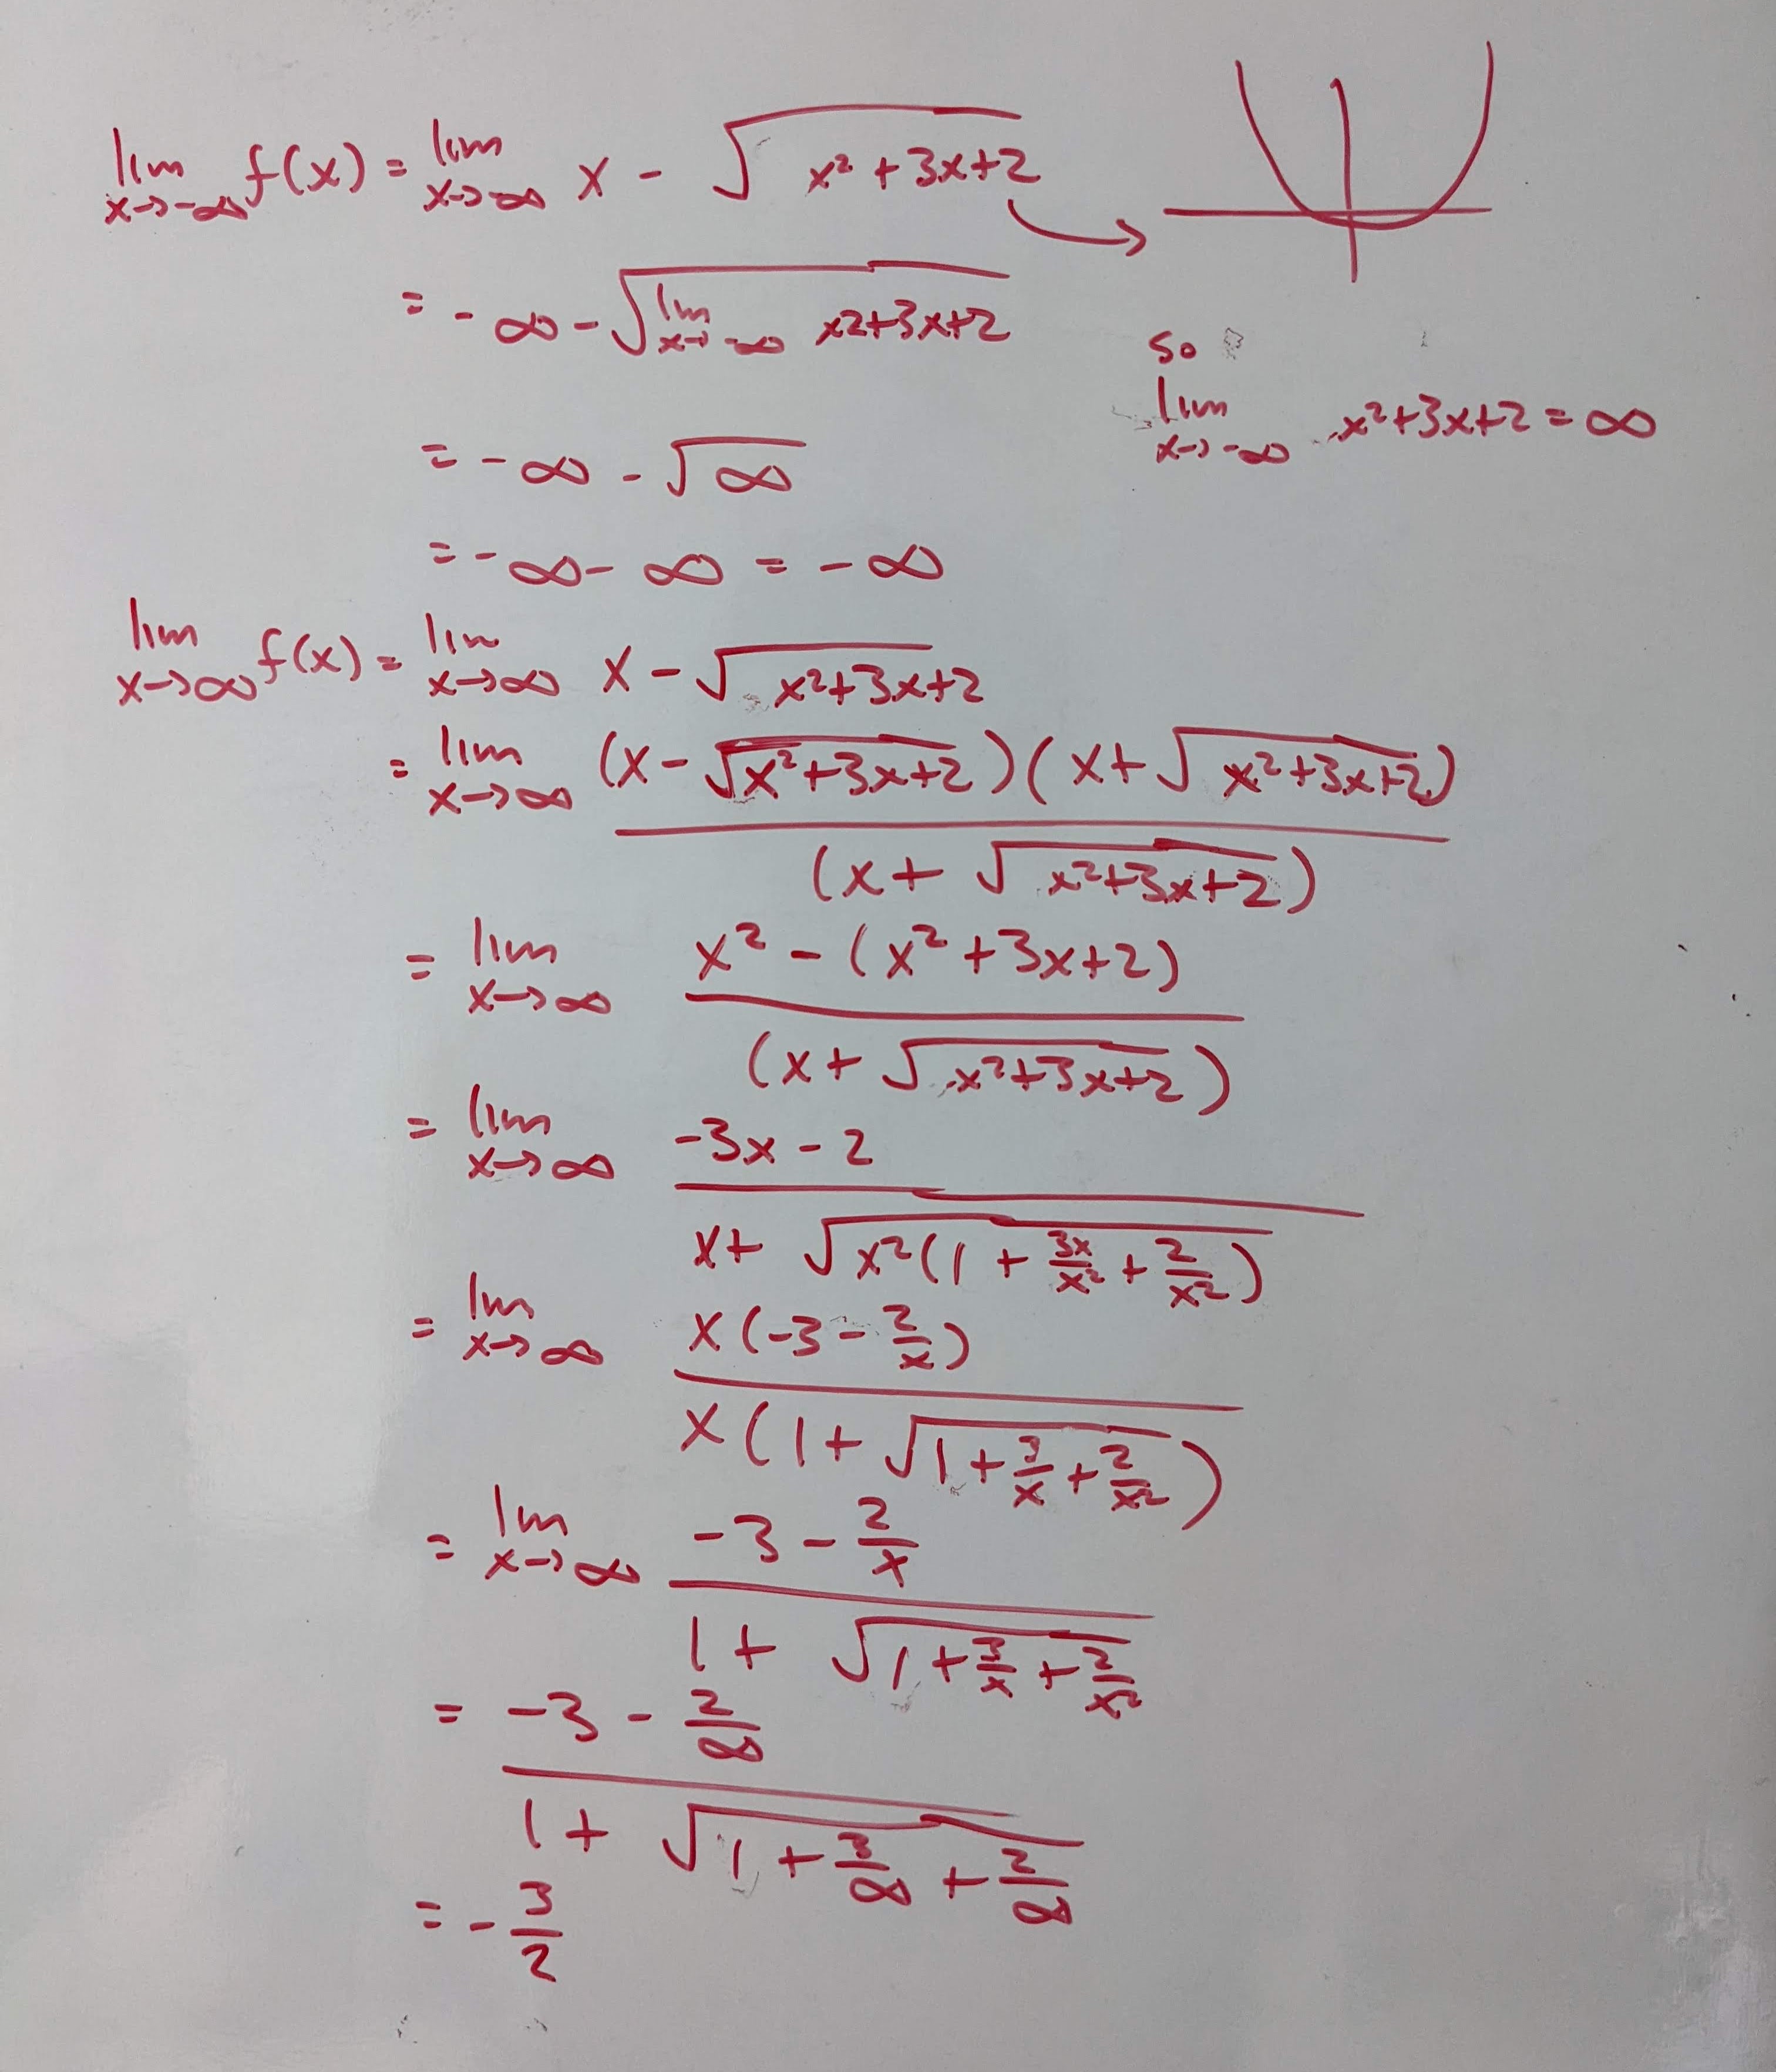 lim x→-∞ f(x) = lim x→-∞ x - √(x² + 3x+2)
= -∞ - √(lim x→-∞ x2+3x+2)
so
lim x→-∞ x²+3x+2 = ∞
= -∞ - √∞
= -∞ - ∞ = -∞
lim x→∞ f(x) = lim x→∞ x - √(x²+3x+2)
= lim x→∞ (x - √(x²+3x+2))(x + √(x²+3x+2))
(x + √(x²+3x+2))
= lim x→∞ x² - (x² + 3x+2)
(x + √(x²+3x+2))
= lim x→∞ -3x - 2
x + √(x²(1 + 3x/x² + 2/x²))
= lim x→∞ x(-3 - 2/x)
x(1 + √(1 + 3/x + 2/x²))
= lim x→∞ -3 - 2/x
1 + √(1 + 3/x + 2/x²)
= -3 - 2/∞
1 + √(1 + 3/∞ + 2/∞)
= -3/2